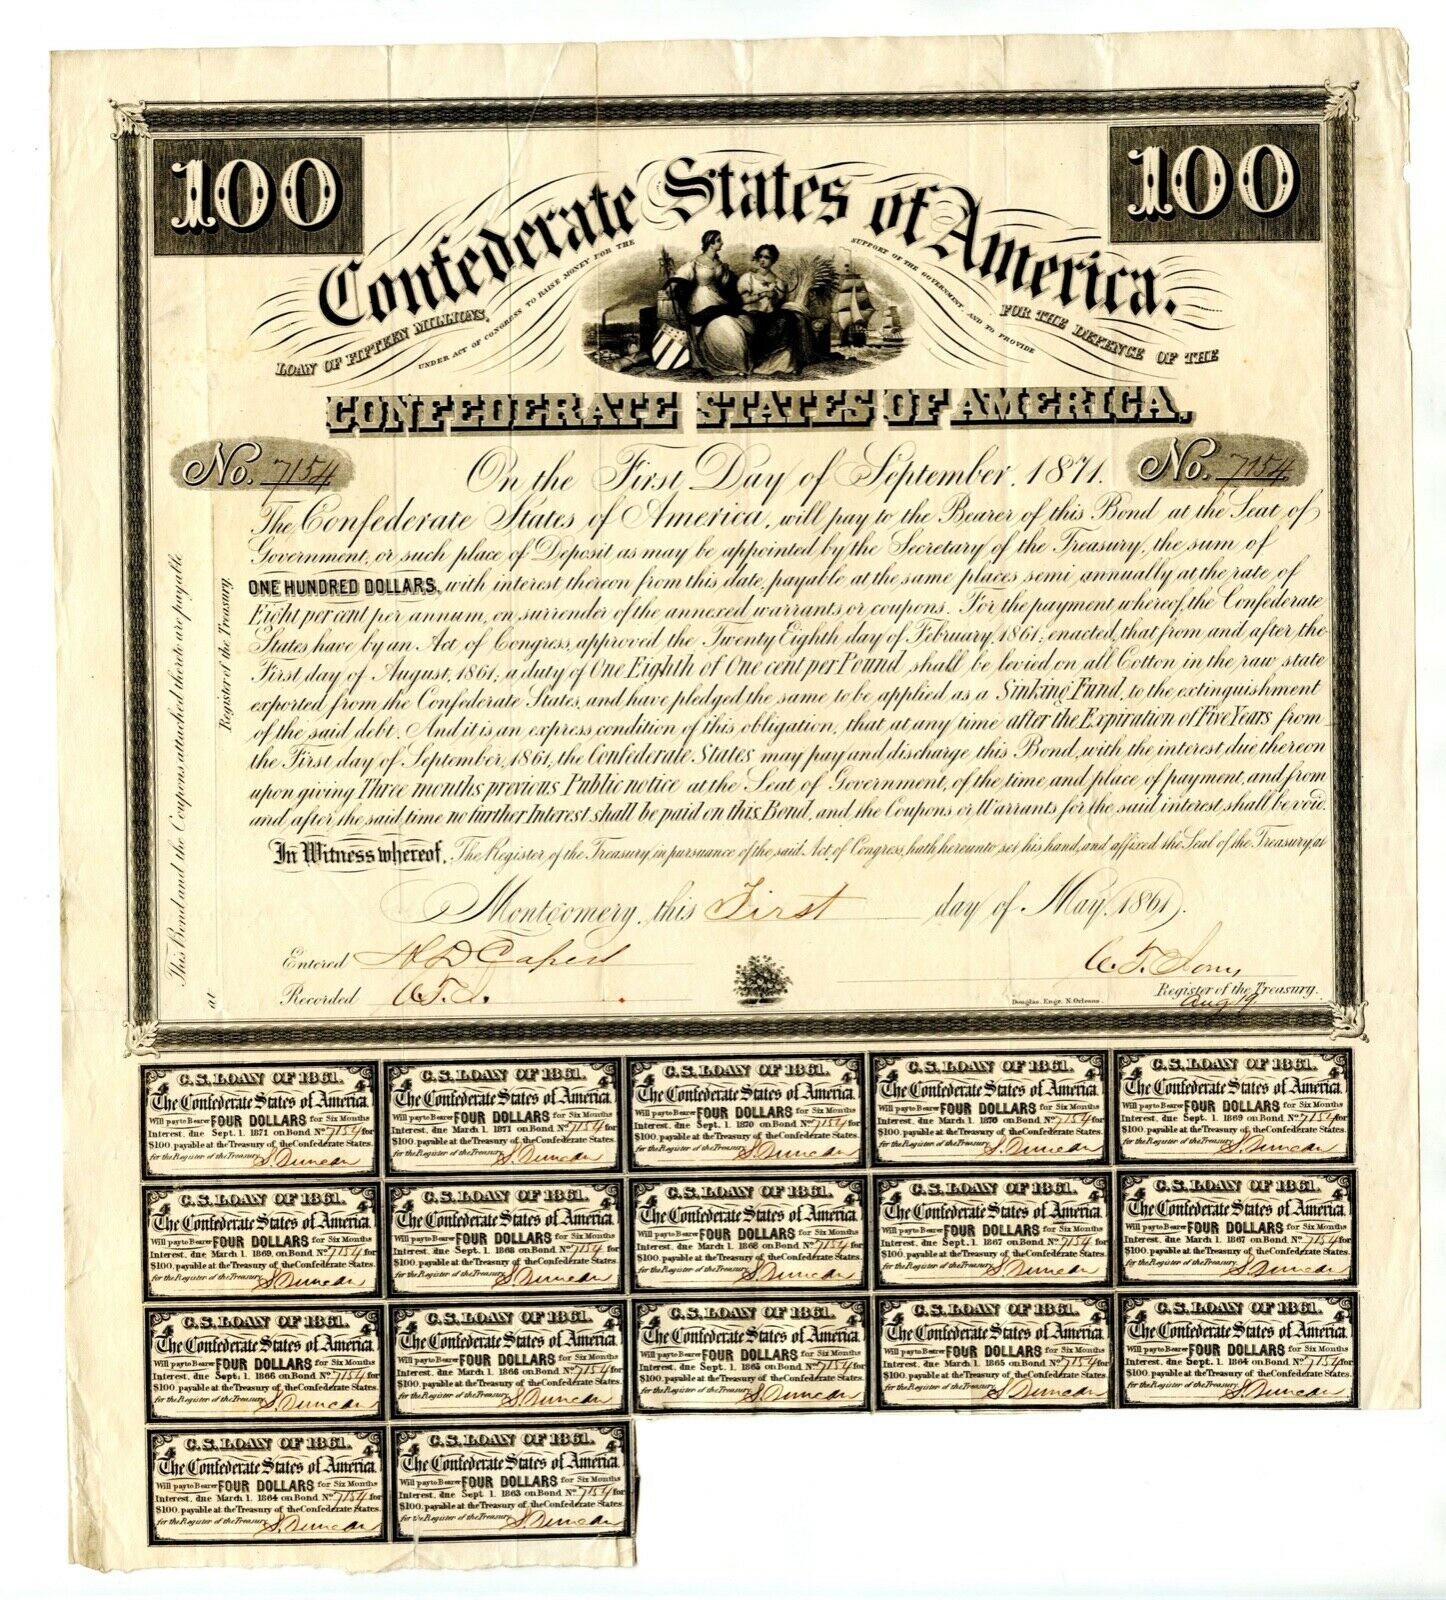 100
100
Confederate States of America.
LOAN OF FIFTEEN MILLIONS,
UNDER ACT OF CONGRESS TO RAISE MONEY FOR THE
SUPPORT OF THE GOVERNMENT, AND TO PROVIDE
FOR THE DEFENCE OF THE
CONFEDERATE STATES OF AMERICA,
No. 7154
On the First Day of September, 1871.
No. 7154
The Confederate States of America, will pay to the Bearer of this Bond at the Seat of
Government, or such place of Deposit as may be appointed by the Secretary of the Treasury, the sum of
ONE HUNDRED DOLLARS, with interest thereon from this date, payable at the same places semi annually at the rate of
Eight per cent per annum, on surrender of the annexed warrants or coupons. For the payment whereof, the Confederate
States have by an Act of Congress, approved the Twenty Eighth day of February, 1861; enacted, that from and after the
First day of August, 1861; a duty of One Eighth of One cent per Pound shall be levied on all Cotton in the raw state
exported from the Confederate States, and have pledged the same to be applied as a Sinking Fund, to the extinguishment
of the said debt. And it is an express condition of this obligation, that at any time after the Expiration of Five Years from
the First day of September, 1861, the Confederate States may pay and discharge this Bond, with the interest due thereon
upon giving Three months previous Public notice at the Seat of Government, of the time and place of payment, and from
and after the said time no further Interest shall be paid on this Bond, and the Coupons or Warrants for the said interest shall be void.
In Witness whereof, The Register of the Treasury, in pursuance of the said Act of Congress, hath hereunto set his hand, and affixed the Seal of the Treasury, at
Montgomery, this First day of May, 1861.
Entered
Recorded
Douglas, Engr. N. Orleans.
Register of the Treasury.
Aug 19
This Bond and the Coupons attached thereto are payable
at
Register of the Treasury.
4 C.S. LOAN OF 1861. 4
The Confederate States of America.
Will pay to Bearer FOUR DOLLARS for Six Months
Interest, due Sept. 1. 1871 on Bond No. 7154 for
$100, payable at the Treasury of the Confederate States.
for the Register of the Treasury S. Duncan
4 C.S. LOAN OF 1861. 4
The Confederate States of America.
Will pay to Bearer FOUR DOLLARS for Six Months
Interest, due March 1. 1871 on Bond No. 7154 for
$100, payable at the Treasury of the Confederate States.
for the Register of the Treasury S. Duncan
4 C.S. LOAN OF 1861. 4
The Confederate States of America.
Will pay to Bearer FOUR DOLLARS for Six Months
Interest, due Sept. 1. 1870 on Bond No. 7154 for
$100, payable at the Treasury of the Confederate States.
for the Register of the Treasury S. Duncan
4 C.S. LOAN OF 1861. 4
The Confederate States of America.
Will pay to Bearer FOUR DOLLARS for Six Months
Interest, due March 1. 1870 on Bond No. 7154 for
$100, payable at the Treasury of the Confederate States.
for the Register of the Treasury S. Duncan
4 C.S. LOAN OF 1861. 4
The Confederate States of America.
Will pay to Bearer FOUR DOLLARS for Six Months
Interest, due Sept. 1. 1869 on Bond No. 7154 for
$100, payable at the Treasury of the Confederate States.
for the Register of the Treasury S. Duncan
4 C.S. LOAN OF 1861. 4
The Confederate States of America.
Will pay to Bearer FOUR DOLLARS for Six Months
Interest, due March 1. 1869, on Bond No. 7154 for
$100, payable at the Treasury of the Confederate States.
for the Register of the Treasury S. Duncan
4 C.S. LOAN OF 1861. 4
The Confederate States of America.
Will pay to Bearer FOUR DOLLARS for Six Months
Interest, due Sept. 1. 1868 on Bond No. 7154 for
$100, payable at the Treasury of the Confederate States.
for the Register of the Treasury S. Duncan
4 C.S. LOAN OF 1861. 4
The Confederate States of America.
Will pay to Bearer FOUR DOLLARS for Six Months
Interest, due March 1. 1868 on Bond No. 7154 for
$100, payable at the Treasury of the Confederate States.
for the Register of the Treasury S. Duncan
4 C.S. LOAN OF 1861. 4
The Confederate States of America.
Will pay to Bearer FOUR DOLLARS for Six Months
Interest, due Sept. 1. 1867 on Bond No. 7154 for
$100, payable at the Treasury of the Confederate States.
for the Register of the Treasury S. Duncan
4 C.S. LOAN OF 1861. 4
The Confederate States of America.
Will pay to Bearer FOUR DOLLARS for Six Months
Interest, due March 1. 1867 on Bond No. 7154 for
$100, payable at the Treasury of the Confederate States.
for the Register of the Treasury S. Duncan
4 C.S. LOAN OF 1861. 4
The Confederate States of America.
Will pay to Bearer FOUR DOLLARS for Six Months
Interest, due Sept. 1. 1866 on Bond No. 7154 for
$100, payable at the Treasury of the Confederate States.
for the Register of the Treasury S. Duncan
4 C.S. LOAN OF 1861. 4
The Confederate States of America.
Will pay to Bearer FOUR DOLLARS for Six Months
Interest, due March 1. 1866 on Bond No. 7154 for
$100, payable at the Treasury of the Confederate States.
for the Register of the Treasury S. Duncan
4 C.S. LOAN OF 1861. 4
The Confederate States of America.
Will pay to Bearer FOUR DOLLARS for Six Months
Interest, due Sept. 1. 1865 on Bond No. 7154 for
$100, payable at the Treasury of the Confederate States.
for the Register of the Treasury S. Duncan
4 C.S. LOAN OF 1861. 4
The Confederate States of America.
Will pay to Bearer FOUR DOLLARS for Six Months
Interest, due March 1. 1865 on Bond No. 7154 for
$100, payable at the Treasury of the Confederate States.
for the Register of the Treasury S. Duncan
4 C.S. LOAN OF 1861. 4
The Confederate States of America.
Will pay to Bearer FOUR DOLLARS for Six Months
Interest, due Sept. 1. 1864 on Bond No. 7154 for
$100, payable at the Treasury of the Confederate States.
for the Register of the Treasury S. Duncan
4 C.S. LOAN OF 1861. 4
The Confederate States of America.
Will pay to Bearer FOUR DOLLARS for Six Months
Interest, due March 1. 1864 on Bond No. 7154 for
$100, payable at the Treasury of the Confederate States.
for the Register of the Treasury S. Duncan
4 C.S. LOAN OF 1861. 4
The Confederate States of America.
Will pay to Bearer FOUR DOLLARS for Six Months
Interest, due Sept. 1. 1863 on Bond No. 7154 for
$100, payable at the Treasury of the Confederate States.
for the Register of the Treasury S. Duncan